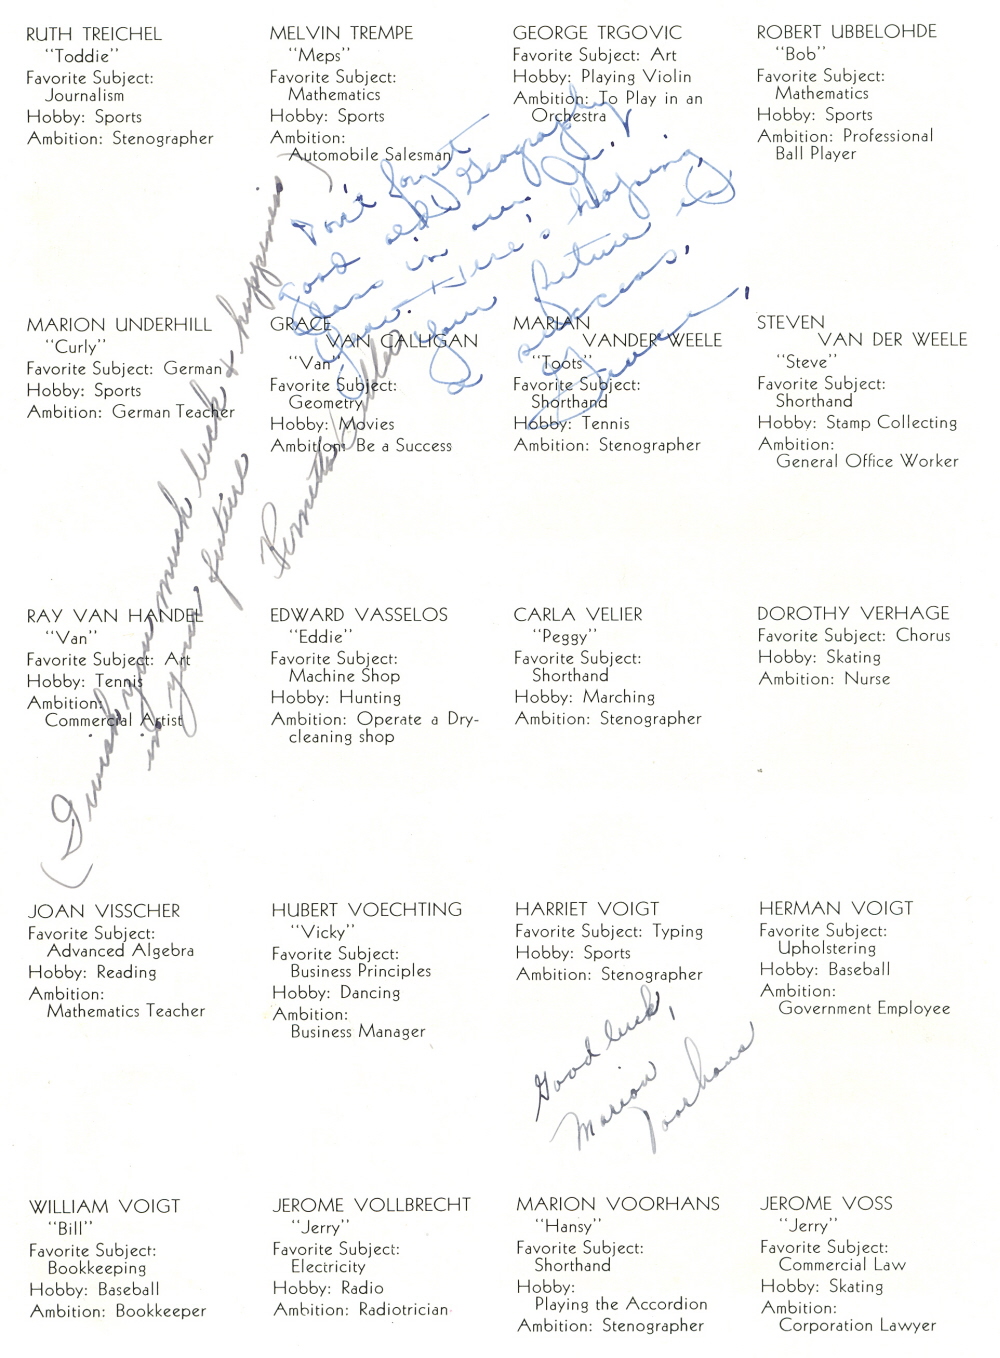 RUTH TREICHEL
"Toddie"
Favorite Subject:
Journalism
Hobby: Sports
Ambition: Stenographer
MELVIN TREMPE
"Meps"
Favorite Subject:
Mathematics
Hobby: Sports
Ambition:
Automobile Salesman
GEORGE TRGOVIC
Favorite Subject: Art
Hobby: Playing Violin
Ambition: To Play in an
Orchestra
ROBERT UBBELOHDE
"Bob"
Favorite Subject:
Mathematics
Hobby: Sports
Ambition: Professional
Ball Player
Don't forget
good old Geography
class in our Jr.
year. Here's hoping
your future is
a success.
MARION UNDERHILL
"Curly"
Favorite Subject: German
Hobby: Sports
Ambition: German Teacher
GRACE
VAN CALLIGAN
"Van"
Favorite Subject:
Geometry
Hobby: Movies
Ambition: Be a Success
MARIAN
VANDER WEELE
"Toots"
Favorite Subject:
Shorthand
Hobby: Tennis
Ambition: Stenographer
STEVEN
VAN DER WEELE
"Steve"
Favorite Subject:
Shorthand
Hobby: Stamp Collecting
Ambition:
General Office Worker
I wish you much luck & happiness
in your future
RAY VAN HANDEL
"Van"
Favorite Subject: Art
Hobby: Tennis
Ambition:
Commercial Artist
EDWARD VASSELOS
"Eddie"
Favorite Subject:
Machine Shop
Hobby: Hunting
Ambition: Operate a Dry-
cleaning shop
CARLA VELIER
"Peggy"
Favorite Subject:
Shorthand
Hobby: Marching
Ambition: Stenographer
DOROTHY VERHAGE
Favorite Subject: Chorus
Hobby: Skating
Ambition: Nurse
JOAN VISSCHER
Favorite Subject:
Advanced Algebra
Hobby: Reading
Ambition:
Mathematics Teacher
HUBERT VOECHTING
"Vicky"
Favorite Subject:
Business Principles
Hobby: Dancing
Ambition:
Business Manager
HARRIET VOIGT
Favorite Subject: Typing
Hobby: Sports
Ambition: Stenographer
HERMAN VOIGT
Favorite Subject:
Upholstering
Hobby: Baseball
Ambition:
Government Employee
Good luck,
Marion
Voorhans
WILLIAM VOIGT
"Bill"
Favorite Subject:
Bookkeeping
Hobby: Baseball
Ambition: Bookkeeper
JEROME VOLLBRECHT
"Jerry"
Favorite Subject:
Electricity
Hobby: Radio
Ambition: Radiotrician
MARION VOORHANS
"Hansy"
Favorite Subject:
Shorthand
Hobby:
Playing the Accordion
Ambition: Stenographer
JEROME VOSS
"Jerry"
Favorite Subject:
Commercial Law
Hobby: Skating
Ambition:
Corporation Lawyer